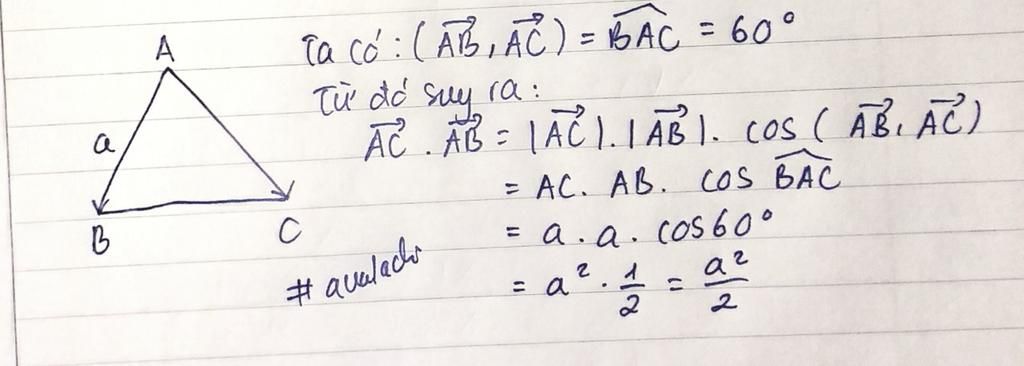 Ta có: (\overrightarrow{AB}, \overrightarrow{AC}) = \widehat{BAC} = 60°
Từ đó suy ra:
\overrightarrow{AC} . \overrightarrow{AB} = |\overrightarrow{AC}|.|\overrightarrow{AB}|. cos(\overrightarrow{AB}, \overrightarrow{AC})
= AC. AB. cos \widehat{BAC}
= a.a. cos60°
= a². \frac{1}{2} = \frac{a²}{2}
A
a
B
C
#